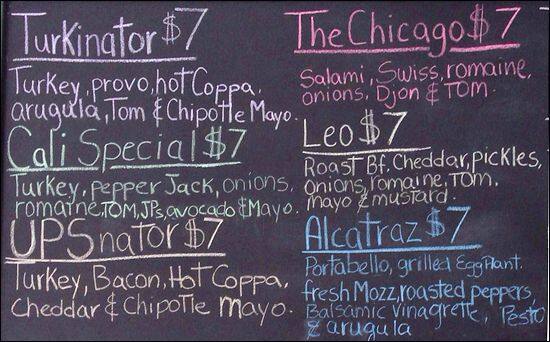 Turkinator $7
Turkey, provo, hot Coppa,
arugula, Tom & Chipotle Mayo.
Cali Special $7
Turkey, pepper Jack, onions,
romaine, TOM, JPs, avocado & Mayo.
UPSnator $7
Turkey, Bacon, Hot Coppa,
Cheddar & Chipotle mayo.
The Chicago $7
Salami, Swiss, romaine,
onions, Djon & TOM.
Leo $7
Roast Bf. Cheddar, pickles,
onions, romaine, TOM,
mayo & mustard
Alcatraz $7
Portabello, grilled EggPlant.
fresh Mozz, roasted peppers,
Balsamic Vinagrette, Pesto
& arugula